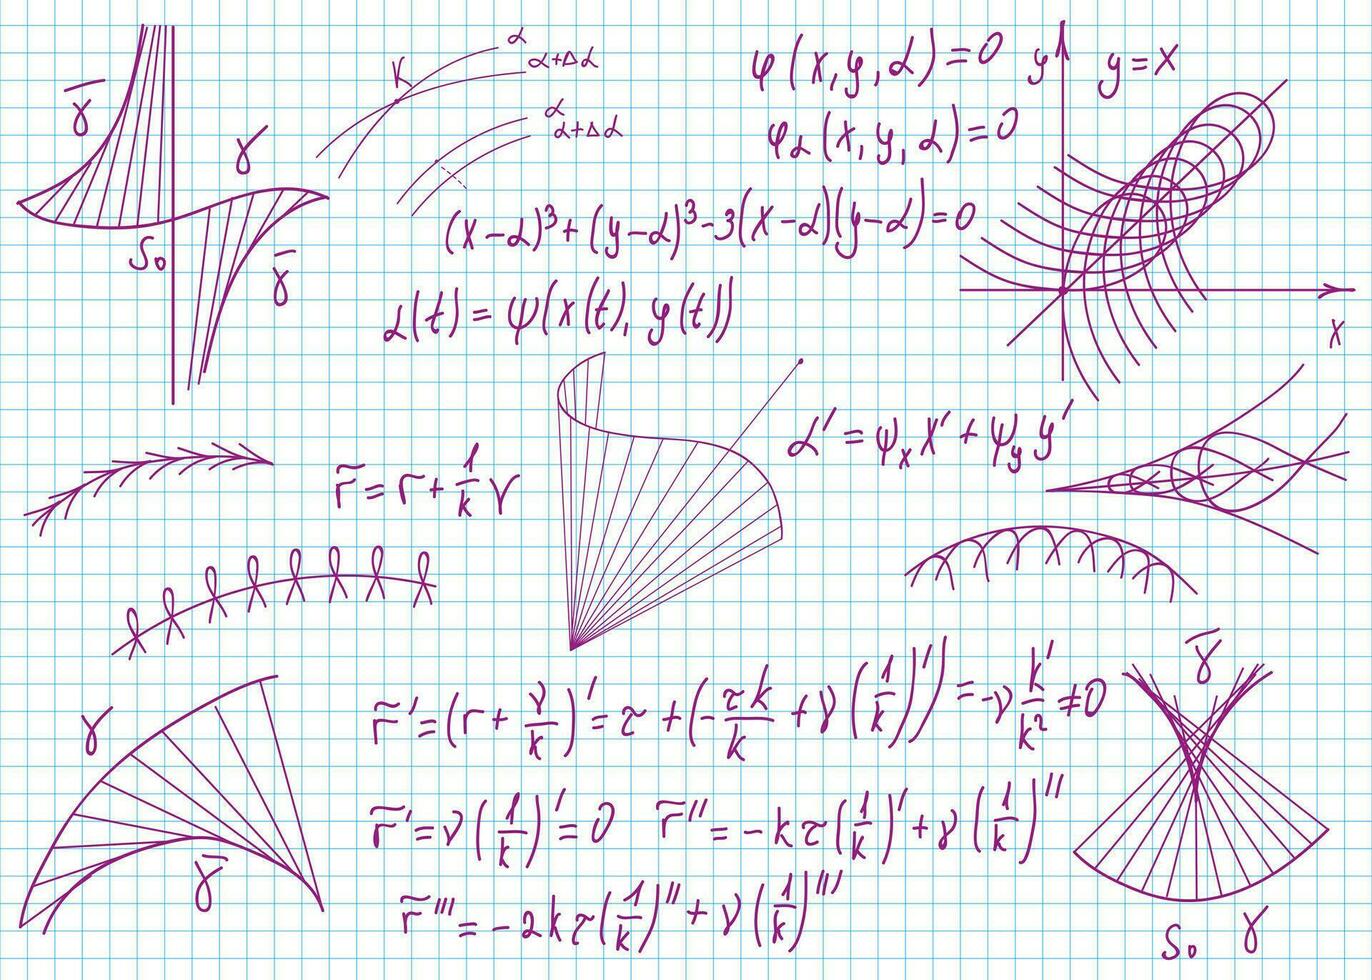 γ̅
γ
S₀
γ̅
K
α
α+Δα
α
α+Δα
φ(x,y,α)=0
φα(x,y,α)=0
(x-α)³+(y-α)³-3(x-α)(y-α)=0
α(t)=ψ(x(t),y(t))
y
y=x
x
α'=ψₓx'+ψᵧy'
r̃=r+1/k ν
γ
γ̅
r̃'=(r+ν/k)'=τ+(-τk/k+ν(1/k)')=-ν k'/k²≠0
r̃'=ν(1/k)'=0 r̃''=-kτ(1/k)'+ν(1/k)''
r̃'''=-2kτ(1/k)''+ν(1/k)'''
γ̅
S₀ γ